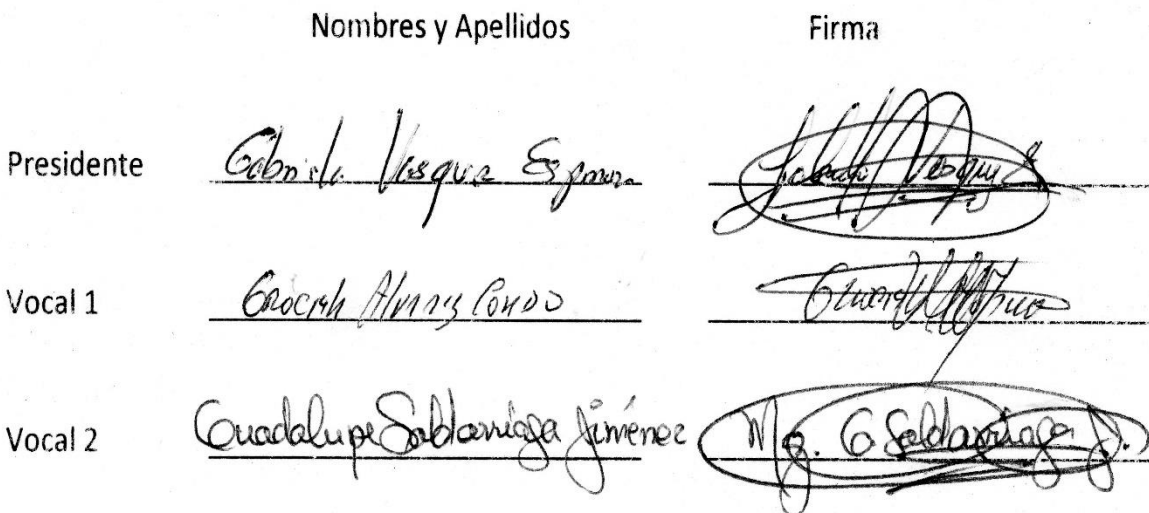 Nombres y Apellidos Firma
Presidente Gabriela Vasquez Espinoza
Vocal 1 Graciela Alvarez Condo
Vocal 2 Guadalupe Saldarriaga Jiménez Mg. G Saldarriaga J.